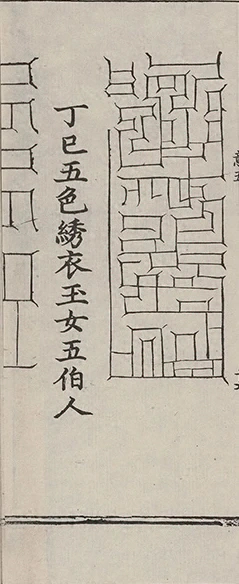 丁巳五色綉衣玉女五伯人